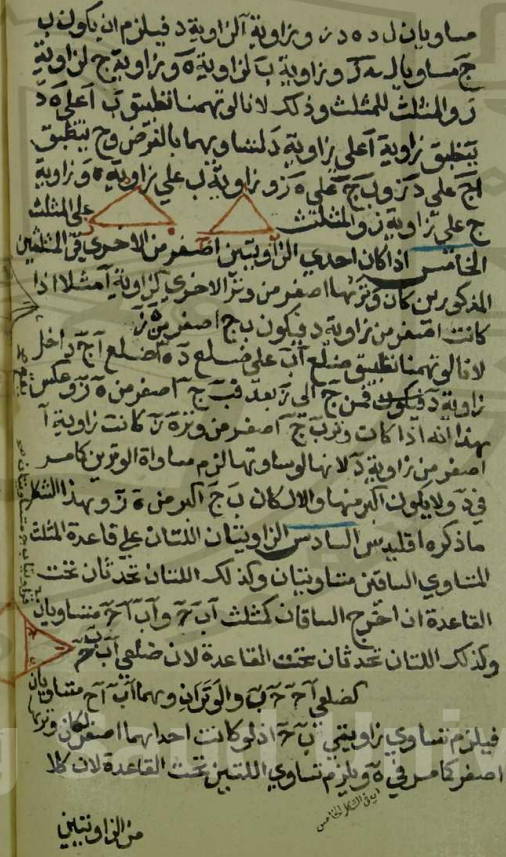 مساويان ل د ه د ز و زاوية آ لزاوية د فيلزم ان يكون ب
ج مساويا ل ه ز و زاوية ب لزاوية ه و زاوية ج لزاوية
ز و المثلث للمثلث وذلك لانا لو توهمنا تطبيق ب آ على ه د
ينطبق زاوية آ على زاوية د لتساويهما بالفرض وح ينطبق
اج على د ز و ب ج على ه ز و زاوية ب على زاوية ه و زاوية
ج على زاوية ز و المثلث على المثلث
الخامس اذا كان احدى الزاويتين اصغر من الاخرى في المثلثين
المذكورين كان وترها اصغر من وتر الاخرى كزاوية آ مثلا اذا
كانت اصغر من زاوية د فيكون ب ج اصغر من ه ز
لانا لو توهمنا تطبيق ضلع آب على ضلع د ه ضلع آج داخل
زاوية د فيكون من ج الى ز بعد فب ج اصغر من ه ز وعكس
هذا انه اذا كان وتر ب ج اصغر من وتر ه ز كانت زاوية آ
اصغر من زاوية د لانها لو ساوتها لزم مساواة الوترين كما مر
في د ولا يكون اكبر منها والا لكان ب ج اكبر من ه ز وبهذا الشكل
ما ذكره اقليدس السادس الزاويتان اللتان على قاعدة المثلث
المتساوي الساقين متساويتان وكذلك اللتان تحدثان تحت
القاعدة ان اخرج الساقان كمثلث آب ج و آب آج متساويان
وكذلك اللتان تحدثان تحت القاعدة لان ضلعي آب ب ج
كضلعي آج ج ب والوتران وهما آج آب متساويان
فيلزم تساوي زاويتي ب ج اذ لو كانت احداهما اصغر لكان وترها
اصغر كما مر في ه ويلزم تساوي اللتين تحت القاعدة لان كلا
اي في الشكل الخامس
من الزاويتين